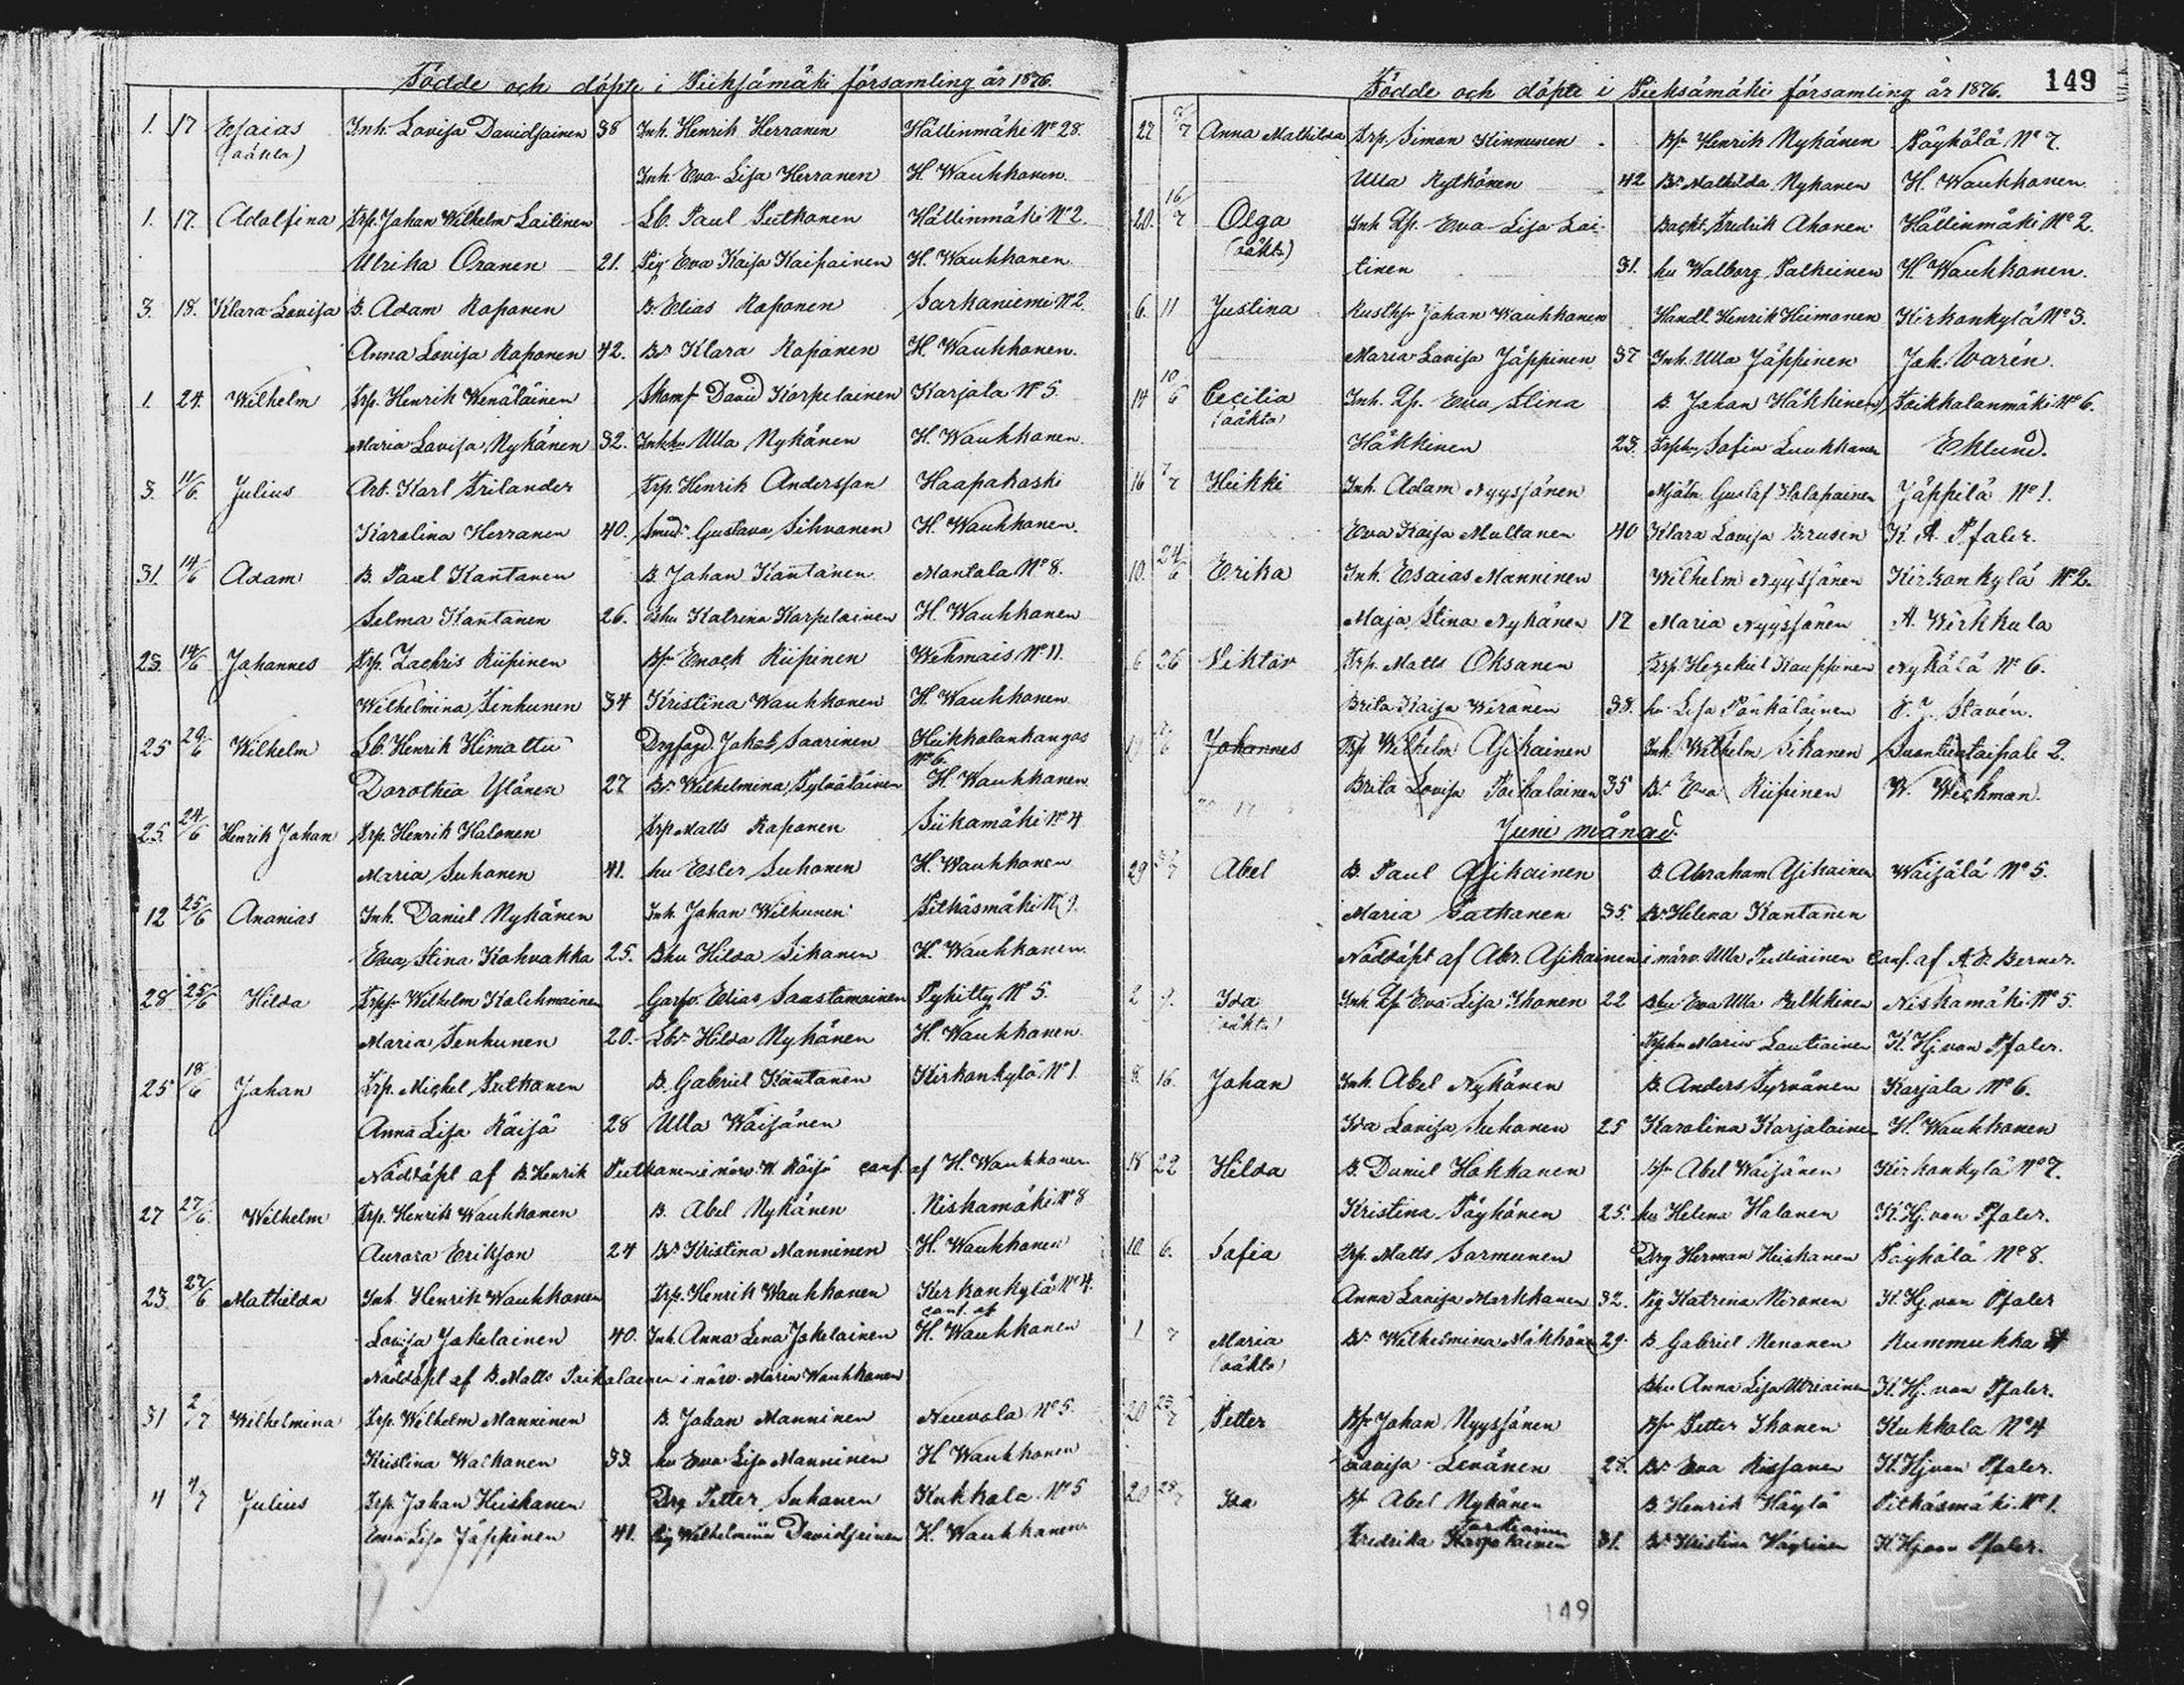 Födde och döpte i Pieksämäki församling år 1876.
1. 17 Esaias Inh. Lovisa Davidsainen 38 Inh. Henrik Herranen Hällinmäki No 28.
(oäkta)
Inh. Eva Lisa Herranen H. Waukkonen.
1. 17. Adolfina Trp. Johan Wilhelm Laitinen Lb. Paul Putkonen Hällinmäki No 2.
Ulrika Oranen 21. Pig Eva Kaisa Kaipainen H. Waukkonen
3. 18. Klara Lovisa B. Adam Roponen B. Elias Roponen Sarkaniemi No 2.
Anna Lovisa Roponen 42. Br Klara Roponen H. Waukkonen.
1. 24. Wilhelm Trp. Henrik Wenäläinen Skomf David Korpelainen Karjala No 5.
Maria Lovisa Nykänen 32. Inhhu Ulla Nykänen H. Waukkonen.
3. 11/6. Julius Arb. Karl Frilander Trp. Henrik Andersson Haapakoski
Karolina Herranen 40. Smeds Gustava Sihvonen H. Waukkonen.
31. 14/6 Adam B. Paul Kantanen B. Johan Kantanen Montola No 8.
Selma Kantanen 26. Bhu Katrina Korpelainen H. Waukkonen
23. 14/6 Johannes Trp. Zachris Riipinen Bfr Enock Riipinen Wehmais No 11.
Wilhelmina Tenhunen 34 Kristina Waukkonen H. Waukkonen
25 29/6 Wilhelm Lb. Henrik Himottu Drgfagd. Jakob Saarinen Heikkolankangas
No 6.
Dorothea Ylönen 27 Br Wilhelmina Pylväläinen H. Waukkonen
25. 24/6 Henrik Johan Trp. Henrik Halonen Trp Matts Roponen Siikamäki No 4
Maria Suhonen 41. hu Ester Suhonen H. Waukkonen
12 25/6 Ananias Inh. Daniel Nykänen Inh. Johan Wilhunen Pitkäsmäki No 9.
Eva Stina Kohvakka 25. Bhu Hilda Sikanen H. Waukkonen.
28 25/6 Hilda Trpf. Wilhelm Kolehmainen Garfv. Elias Saastamoinen Pyhitty No 5.
Maria Tenhunen 20. Lbr. Hilda Nykänen H. Waukkonen
25 18/6 Johan Trp. Michel Putkonen B. Gabriel Kantanen Kirkonkylä No 1
Anna Lisa Räisä 28 Ulla Wäisänen
Nöddöpt af B. Henrik Putkonen i närv. W. Räisä conf. af H. Waukkonen.
27 27/6. Wilhelm Trp. Henrik Waukkonen B. Abel Nykänen Niskamäki No 8
Aurora Eriksson 24 Br Kristina Manninen H. Waukkonen
23 27/6 Mathilda Inh. Henrik Waukkonen Trp. Henrik Waukkonen Kirkonkylä No 4.
conf. af
Lovisa Jokelainen 40. Inh. Anna Lena Jokelainen H. Waukkonen
Nöddöpt af B. Matts Poikolainen i närv. Maria Waukkonen
31 2/7 Wilhelmina Trp. Wilhelm Manninen B. Johan Manninen Neuvola No 5.
Kristina Walkonen 33. hu Eva Lisa Manninen H. Waukkonen
4 9/7 Julius Trp. Johan Hiiskanen Drg Petter Suhonen Kukkola No 5
Eva Lisa Jäppinen 41. Pig Wilhelmina Davidsainen H. Waukkonen
149
Födde och döpte i Pieksämäki församling år 1876.
27 2/7 Anna Mathilda Trp. Simon Kinnunen Bfr Henrik Nykänen Pöyhölä No 7.
Ulla Rytkönen 42 Br. Mathilda Nykänen H. Waukkonen.
20. 16/7 Olga Inh Df. Eva Lisa Lai- Backst. Fredrik Ahonen Hällinmäki No 2.
(oäkta)
tinen 31. hu Walborg Palkeinen H. Waukkonen.
6. 11 Justina Rusthfr Johan Waukkonen Handl. Henrik Heimonen Kirkonkylä No 3.
Maria Lovisa Jäppinen 37 Inh. Ulla Jäppinen Joh. Warén.
14 10/6 Cecilia Inh. Df. Eva Stina B. Johan Häkkinen Paikkalanmäki No 6.
(oäkta)
Häkkinen 23. Trphu Sofia Luukkonen Eklund.
16 7/7 Heikki Inh. Adam Nyyssönen Mjöln. Gustaf Holopainen Jäppilä No 1.
Eva Kaisa Multanen 40 Klara Lovisa Brusin K A Pfaler.
10. 24/6 Erika Inh. Esaias Manninen Wilhelm Nyyssönen Kirkonkylä No 2.
Maja Stina Nykänen 17 Maria Nyyssönen A. Wirkkula
6 26 Viktor Trp. Matts Oksanen Trp. Hezekiel Kauppinen Nykälä No 6.
Brita Kaisa Wiranen 38. hu Lisa Pänkäläinen
Johannes Trp Wilhelm Asikainen Inh. Wilhelm Sikanen Suontientaipale 2.
Brita Lovisa Poikolainen 35 Br Eva Riipinen W. Weckman.
Juni månad.
29 Abel B. Paul Asikainen B. Abraham Asikainen Wäisälä No 5.
Maria Putkonen 35. Br Helena Kantanen
Nöddöpt af Abr. Asikainen i närv. Ulla Putkonen conf. af A. E. Berner.
2 9. Ida Inh. Df Eva Lisa Ihonen 22 Bhu Eva Ulla Pulkkinen Niskamäki No 5.
(oäkta)
Trphu Maria Lautiainen K. Hj. von Pfaler.
8. 16. Johan Inh. Abel Nykänen B. Anders Tyrvänen Karjala No 6.
Ida Lovisa Suhonen 25 Karolina Karjalainen H. Waukkonen
18 22 Hilda B. Daniel Hokkanen Bfr Abel Wäisänen Kirkonkylä No 7.
Kristina Pöyhönen 25. hu Helena Halonen K. Hj. von Pfaler.
10. 6. Sofia Trp. Matts Sormunen Drg Herman Hiiskanen Pöyhölä No 8.
Anna Lovisa Markkanen 32. Pig Katrina Nironen K. Hj. von Pfaler
1 7 Maria Br. Wilhelmina Mökkönen 29. B. Gabriel Nenonen Rummukka 4
(oäkta)
Bhu Anna Lisa Utriainen K. Hj. von Pfaler.
20 23/7 Petter Bfr Johan Nyyssönen Bfr Petter Ihonen Kukkola No 4
Lovisa Lenänen 28. Br Eva Rissanen K. Hj von Pfaler.
20 Ida Bf Abel Nykänen B. Henrik Häylä Pitkäsmäki No 1.
Tarkiainen
Fredrika Karjalainen 31. Br Kristina Häyrinen K. Hj von Pfaler.
149